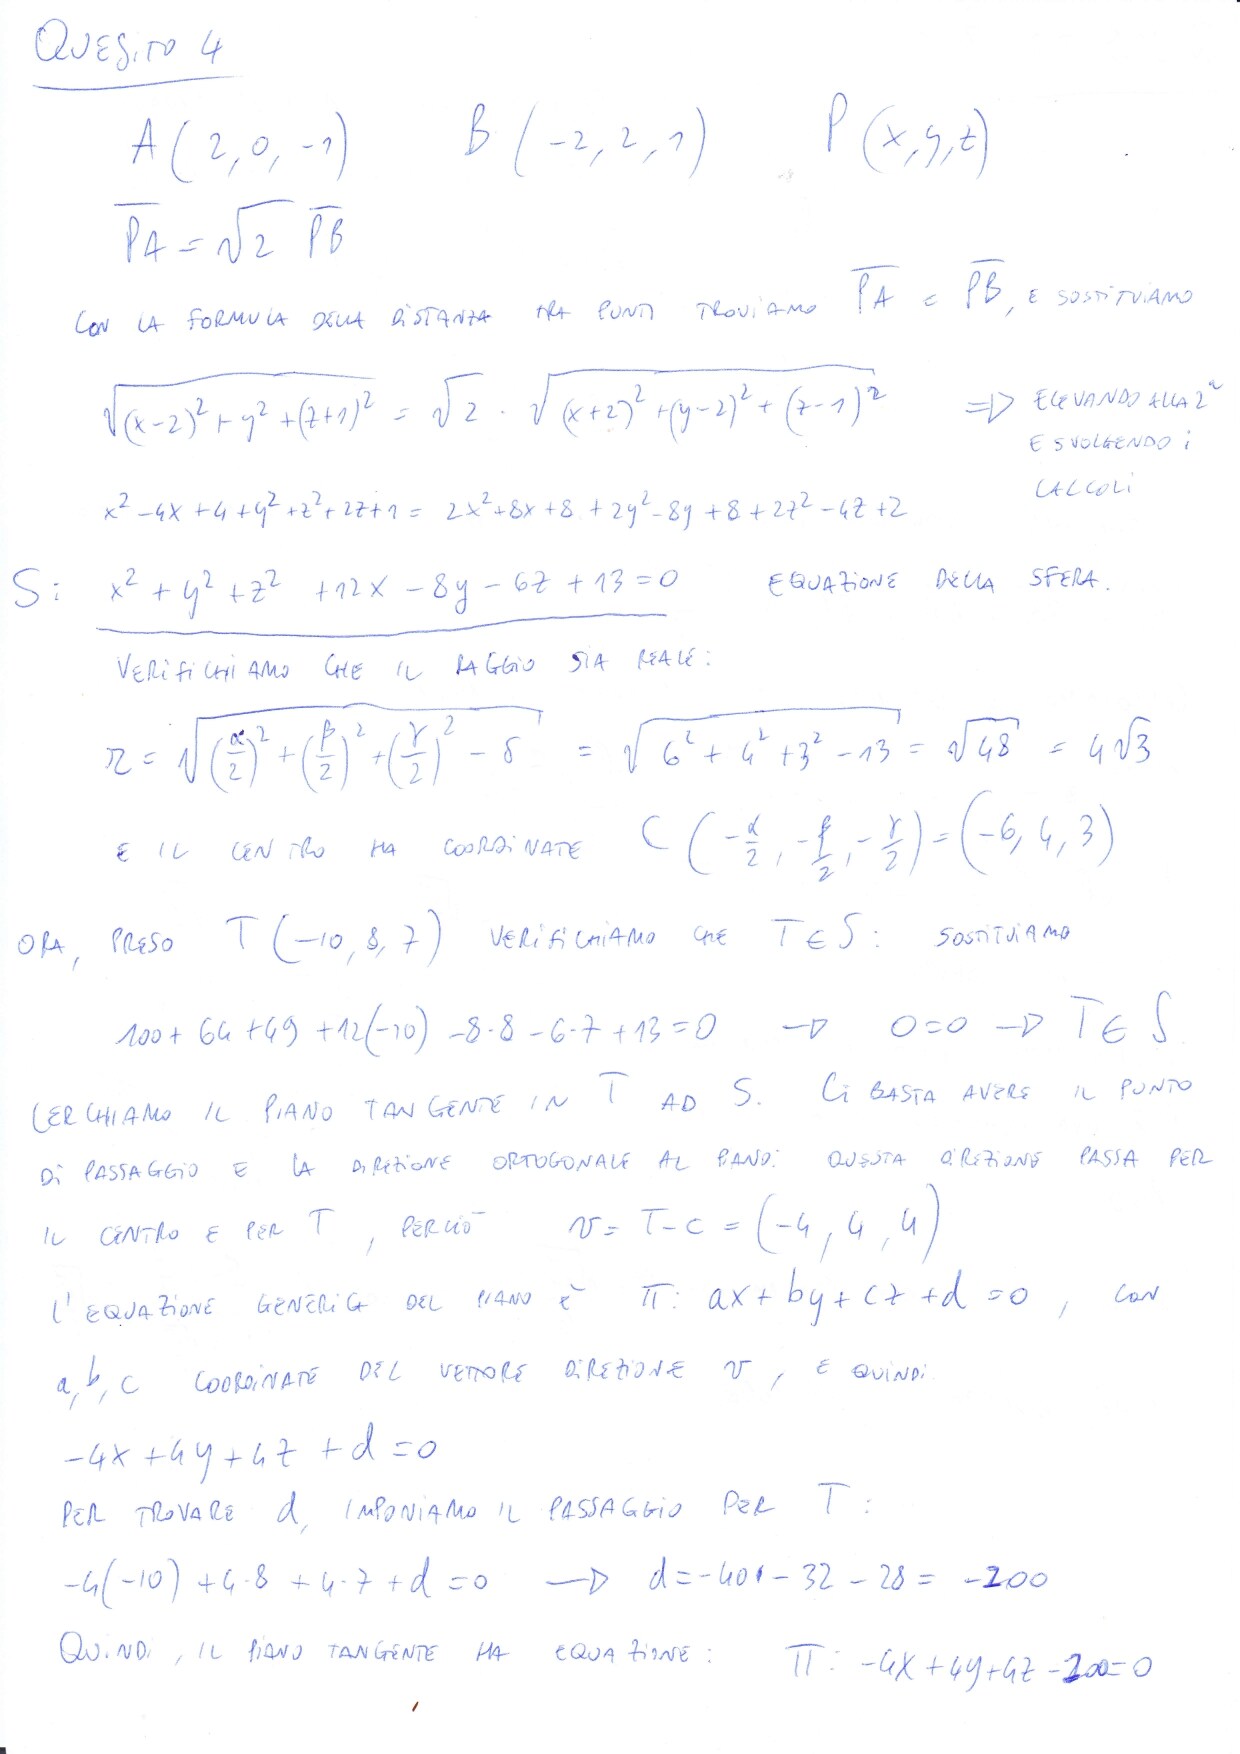 QUESITO 4
A(2,0,-1) B(-2,2,1) P(x,y,z)
PA = √2 PB
CON LA FORMULA DELLA DISTANZA TRA PUNTI TROVIAMO PA E PB, E SOSTITUIAMO
√((x-2)²+y²+(z+1)²) = √2 · √((x+2)²+(y-2)²+(z-1)²) => ELEVANDO ALLA 2ª
E SVOLGENDO i
CALCOLI
x²-4x+4+y²+z²+2z+1 = 2x²+8x+8+2y²-8y+8+2z²-4z+2
S: x²+y²+z²+12x-8y-6z+13=0 EQUAZIONE DELLA SFERA.
VERIFICHIAMO CHE IL RAGGIO SIA REALE:
r = √((α/2)²+(β/2)²+(γ/2)²-δ) = √(6²+4²+3²-13) = √48 = 4√3
E IL CENTRO HA COORDINATE C(-α/2, -β/2, -γ/2) = (-6,4,3)
ORA, PRESO T(-10,8,7) VERIFICHIAMO CHE T∈S: SOSTITUIAMO
100+64+49+12(-10)-8·8-6·7+13=0 → 0=0 → T∈S
CERCHIAMO IL PIANO TANGENTE IN T AD S. Ci BASTA AVERE IL PUNTO
Di PASSAGGIO E LA DIREZIONE ORTOGONALE AL PIANO: QUESTA DIREZIONE PASSA PER
IL CENTRO E PER T, PERCIÒ v = T-C = (-4,4,4)
L'EQUAZIONE GENERICA DEL PIANO È π: ax+by+cz+d=0, CON
a,b,c COORDINATE DEL VETTORE DIREZIONE v, E QUINDI
-4x+4y+4z+d=0
PER TROVARE d, IMPONIAMO IL PASSAGGIO PER T:
-4(-10)+4·8+4·7+d=0 → d=-40-32-28= -100
QUINDI, IL PIANO TANGENTE HA EQUAZIONE: π: -4x+4y+4z-100=0